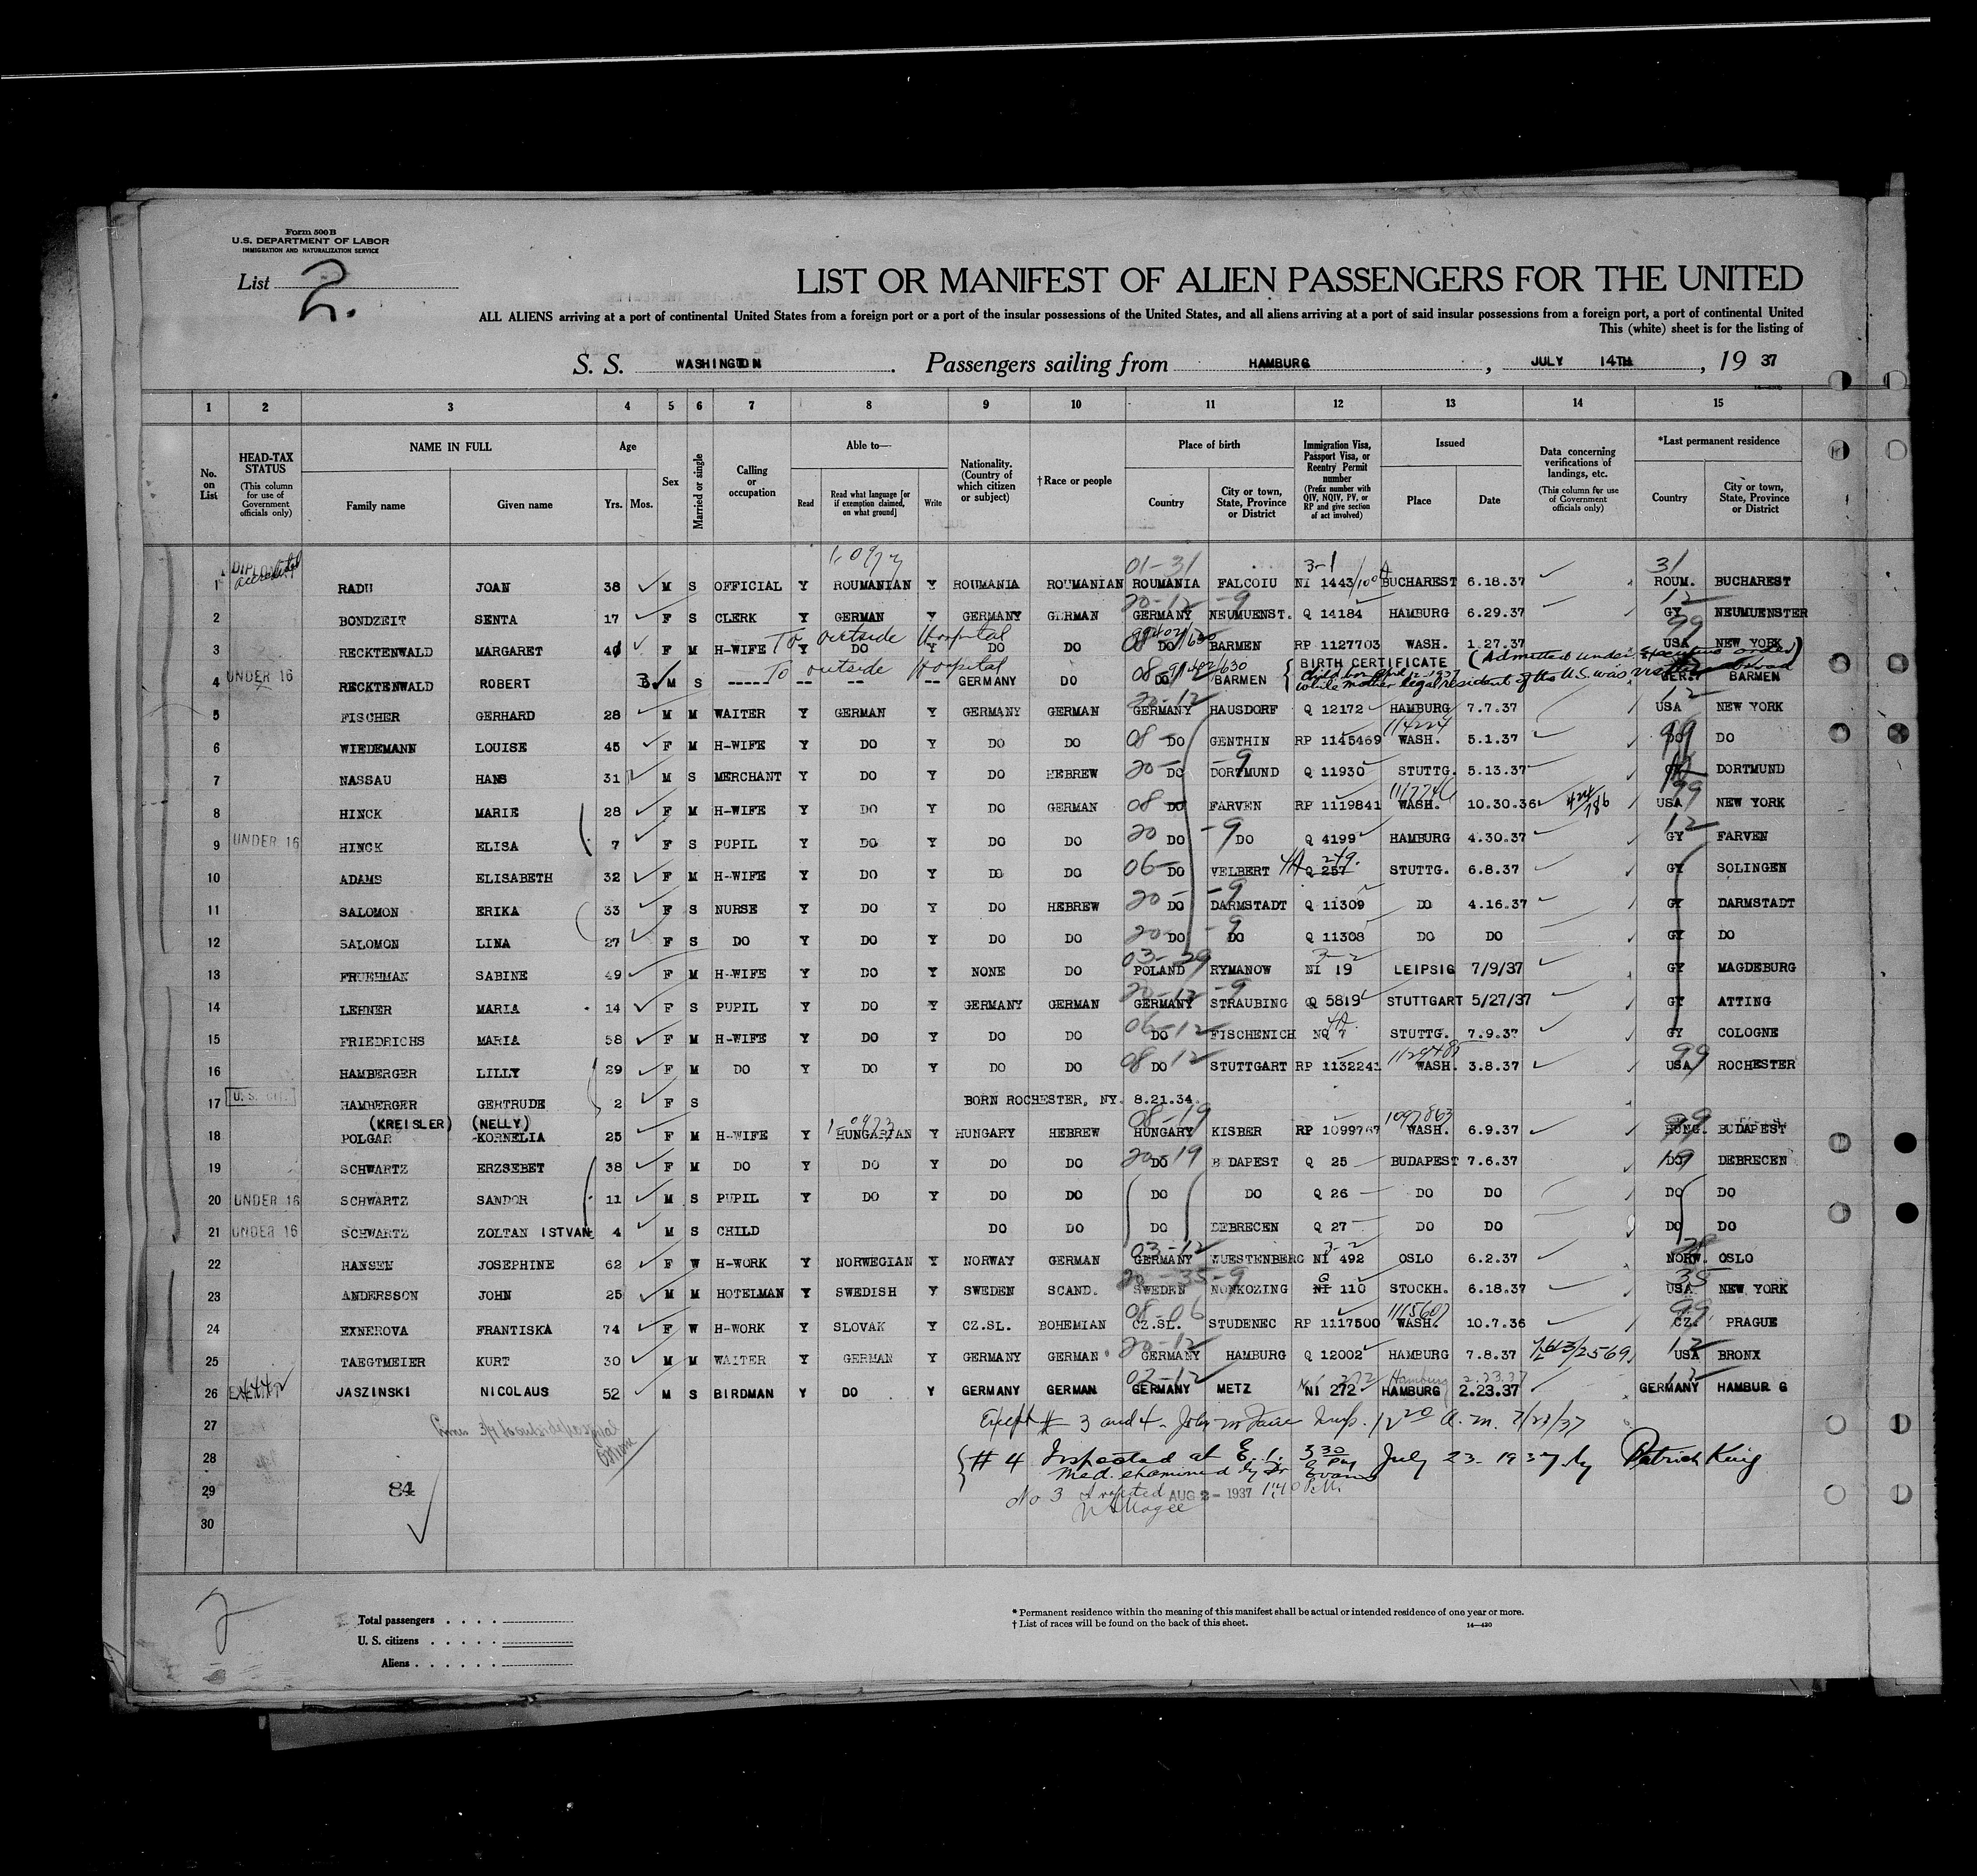 Form 500 B
U.S. DEPARTMENT OF LABOR
IMMIGRATION AND NATURALIZATION SERVICE
List 2.
LIST OR MANIFEST OF ALIEN PASSENGERS FOR THE UNITED
ALL ALIENS arriving at a port of continental United States from a foreign port or a port of the insular possessions of the United States, and all aliens arriving at a port of said insular possessions from a foreign port, a port of continental United
This (white) sheet is for the listing of
S. S. WASHINGTON . Passengers sailing from HAMBURG , JULY 14TH , 19 37
1 2 3 4 5 6 7 8 9 10 11 12 13 14 15
No. on List
HEAD-TAX STATUS (This column for use of Government officials only)
NAME IN FULL
Family name Given name
Age
Yrs. Mos.
Sex
Married or single
Calling or occupation
Able to—
Read Read what language [or if exemption claimed, on what ground] Write
Nationality. (Country of which citizen or subject)
† Race or people
Place of birth
Country City or town, State, Province or District
Immigration Visa, Passport Visa, or Reentry Permit number (Prefix number with QIV, NQIV, PV, or RP and give section of act involved)
Issued
Place Date
Data concerning verifications of landings, etc. (This column for use of Government officials only)
*Last permanent residence
Country City or town, State, Province or District
1 RADU JOAN 38 M S OFFICIAL Y ROUMANIAN Y ROUMANIA ROUMANIAN 01-31 ROUMANIA FALCOIU 3-1 NI 1443/1004 BUCHAREST 6.18.37 31 ROUM. BUCHAREST
2 BONDZEIT SENTA 17 F S CLERK Y GERMAN Y GERMANY GERMAN 20-12-9 GERMANY NEUMUENST. Q 14184 HAMBURG 6.29.37 12 GY NEUMUENSTER
To outside Hospital
3 RECKTENWALD MARGARET F M H-WIFE Y DO Y DO DO DO BARMEN RP 1127703 WASH. 1.27.37 99 USA NEW YORK
To outside Hospital
4 UNDER 16 RECKTENWALD ROBERT 3 M S ----- -- -- -- GERMANY DO 08 DO BARMEN BIRTH CERTIFICATE (Admitted under Executive order) GER. BARMEN
while mother legal resident of the U.S. was visiting abroad
5 FISCHER GERHARD 28 M M WAITER Y GERMAN Y GERMANY GERMAN 20-12 GERMANY HAUSDORF Q 12172 HAMBURG 7.7.37 12 USA NEW YORK
6 WIEDEMANN LOUISE 45 F M H-WIFE Y DO Y DO DO 08 DO GENTHIN RP 1145469 114224 WASH. 5.1.37 99 DO DO
7 NASSAU HANS 31 M S MERCHANT Y DO Y DO HEBREW 20- DO -9 DORTMUND Q 11930 STUTTG. 5.13.37 GY DORTMUND
8 HINCK MARIE 28 F M H-WIFE Y DO Y DO GERMAN 08 DO FARVEN RP 1119841 1117746 WASH. 10.30.36 424/786 99 USA NEW YORK
9 UNDER 16 HINCK ELISA 7 F S PUPIL Y DO Y DO DO 20 DO -9 DO Q 4199 HAMBURG 4.30.37 12 GY FARVEN
10 ADAMS ELISABETH 32 F M H-WIFE Y DO Y DO DO 06- DO VELBERT 4A 249. Q 257 STUTTG. 6.8.37 GY SOLINGEN
11 SALOMON ERIKA 33 F S NURSE Y DO Y DO HEBREW 20- DO -9 DARMSTADT Q 11309 DO 4.16.37 GY DARMSTADT
12 SALOMON LINA 27 F S DO Y DO Y DO DO 20- DO -9 DO Q 11308 DO DO GY DO
13 FRUEHMAN SABINE 49 F M H-WIFE Y DO Y NONE DO 03-29 POLAND RYMANOW 3-2 NI 19 LEIPSIG 7/9/37 GY MAGDEBURG
14 LEHNER MARIA 14 F S PUPIL Y DO Y GERMANY GERMAN 20-12-9 GERMANY STRAUBING Q 5819 STUTTGART 5/27/37 GY ATTING
15 FRIEDRICHS MARIA 58 F M H-WIFE Y DO Y DO DO 06-12 DO FISCHENICH 4A. NQ 7 STUTTG. 7.9.37 GY COLOGNE
16 HAMBERGER LILLY 29 F M DO Y DO Y DO DO 08 DO 12 STUTTGART RP 1132241 1129485 WASH. 3.8.37 99 USA ROCHESTER
17 U. S. CIT. HAMBERGER GERTRUDE 2 F S BORN ROCHESTER, NY. 8.21.34.
(KREISLER) (NELLY)
18 POLGAR KORNELIA 25 F M H-WIFE Y HUNGARIAN Y HUNGARY HEBREW 08-19 HUNGARY KISBER RP 1099767 1097863 WASH. 6.9.37 99 HUNG. BUDAPEST
19 SCHWARTZ ERZSEBET 38 F M DO Y DO Y DO DO 20 DO 19 B DAPEST Q 25 BUDAPEST 7.6.37 19 DO DEBRECEN
20 UNDER 16 SCHWARTZ SANDOR 11 M S PUPIL Y DO Y DO DO DO DO Q 26 DO DO DO DO
21 UNDER 16 SCHWARTZ ZOLTAN ISTVAN 4 M S CHILD DO DO DO DEBRECEN Q 27 DO DO DO DO
22 HANSEN JOSEPHINE 62 F W H-WORK Y NORWEGIAN Y NORWAY GERMAN 03-12 GERMANY WUESTENBERG 3-2 NI 492 OSLO 6.2.37 NORW. OSLO
23 ANDERSSON JOHN 25 M M HOTELMAN Y SWEDISH Y SWEDEN SCAND. 20-35-9 SWEDEN NONKOZING Q NI 110 STOCKH. 6.18.37 35 USA NEW YORK
24 EXNEROVA FRANTISKA 74 F W H-WORK Y SLOVAK Y CZ.SL. BOHEMIAN 08-06 CZ.SL. STUDENEC RP 1117500 1115607 WASH. 10.7.36 99 CZ. PRAGUE
25 TAEGTMEIER KURT 30 M M WAITER Y GERMAN Y GERMANY GERMAN 20-12 GERMANY HAMBURG Q 12002 HAMBURG 7.8.37 12 USA BRONX
26 JASZINSKI NICOLAUS 52 M S BIRDMAN Y DO Y GERMANY GERMAN 02-12 GERMANY METZ NI 272 HAMBURG 2.23.37 GERMANY HAMBUR G
27 Except # 3 and 4 - Insp. 12 20 A.M. 7/23/37
28 # 4 Inspected at E. I. 3 30 PM July 23 - 1937 by Patrick King
Med. examined by Dr Evans
29 84 No 3 AUG 2 - 1937 1:40 P.M.
30
2
Total passengers
U. S. citizens
Aliens
* Permanent residence within the meaning of this manifest shall be actual or intended residence of one year or more.
† List of races will be found on the back of this sheet.
14—430